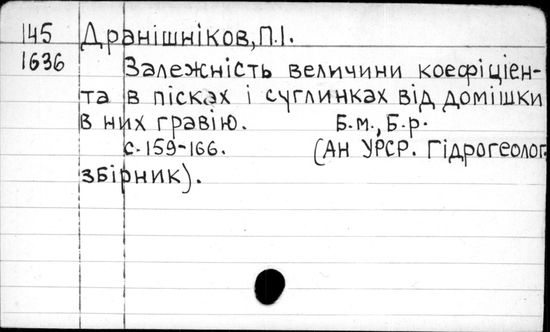 145 Дранішніков,П.І.
1636 Залежність величини коефіціен-
та в пісках і суглинках від домішки
в них гравію. Б.м., Б.р.
с.159-166. (Ан УРСР. Гідрогеолог.
збірник).